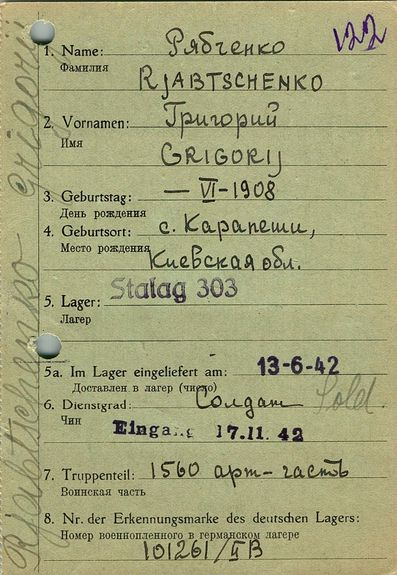 122
1. Name: Рябченко
Фамилия
RJABTSCHENKO
2. Vornamen: Григорий
Имя
GRIGORIJ
3. Geburtstag: — VI-1908
День рождения
4. Geburtsort: с. Карапеши,
Место рождения
Киевская обл.
5. Lager: Stalag 303
Лагерь
5a. Im Lager eingeliefert am: 13-6-42
Доставлен в лагерь (число)
6. Dienstgrad: Солдат Sold.
Чин
Eingang 17.11.42
7. Truppenteil: 1560 арт-часть
Воинская часть
8. Nr. der Erkennungsmarke des deutschen Lagers:
Номер военнопленного в германском лагере
101261/IIB
Rjabtschenko Grigorij